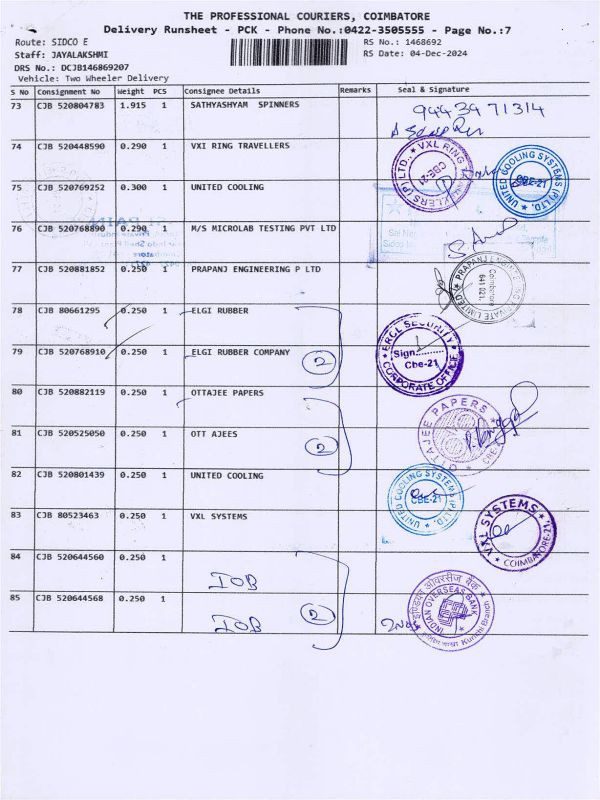 THE PROFESSIONAL COURIERS, COIMBATORE
Delivery Runsheet - PCK - Phone No.:0422-3505555 - Page No.:7
Route: SIDCO E
RS No.: 1468692
Staff: JAYALAKSHMI
RS Date: 04-Dec-2024
DRS No.: DCJB146869207
Vehicle: Two Wheeler Delivery
S No Consignment No Weight PCS Consignee Details Remarks Seal & Signature
73 CJB 520804783 1.915 1 SATHYASHYAM SPINNERS
9443971314
74 CJB 520448590 0.290 1 VXI RING TRAVELLERS
VXL RING
CBE-21
UNITED COOLING SYSTEMS (P) LTD.
CBE-21
75 CJB 520769252 0.300 1 UNITED COOLING
76 CJB 520768890 0.290 1 M/S MICROLAB TESTING PVT LTD
77 CJB 520881852 0.250 1 PRAPANJ ENGINEERING P LTD
PRAPANJ ENGINEERING PRIVATE LIMITED
Coimbatore
641 021.
78 CJB 80661295 0.250 1 ELGI RUBBER
79 CJB 520768910 0.250 1 ELGI RUBBER COMPANY
2
ERCL SECURITY
Sign..........
Cbe-21
CORPORATE OFFICE
80 CJB 520882119 0.250 1 OTTAJEE PAPERS
81 CJB 520525050 0.250 1 OTT AJEES
2
OTTAJEE PAPERS
82 CJB 520801439 0.250 1 UNITED COOLING
UNITED COOLING SYSTEMS (P) LTD.
CBE-21
83 CJB 80523463 0.250 1 VXL SYSTEMS
VXL SYSTEMS
COIMBATORE-21
84 CJB 520644560 0.250 1
IOB
85 CJB 520644568 0.250 1
IOB
2
इण्डियन ओवरसीज बैंक
INDIAN OVERSEAS BANK
Kurichi Branch